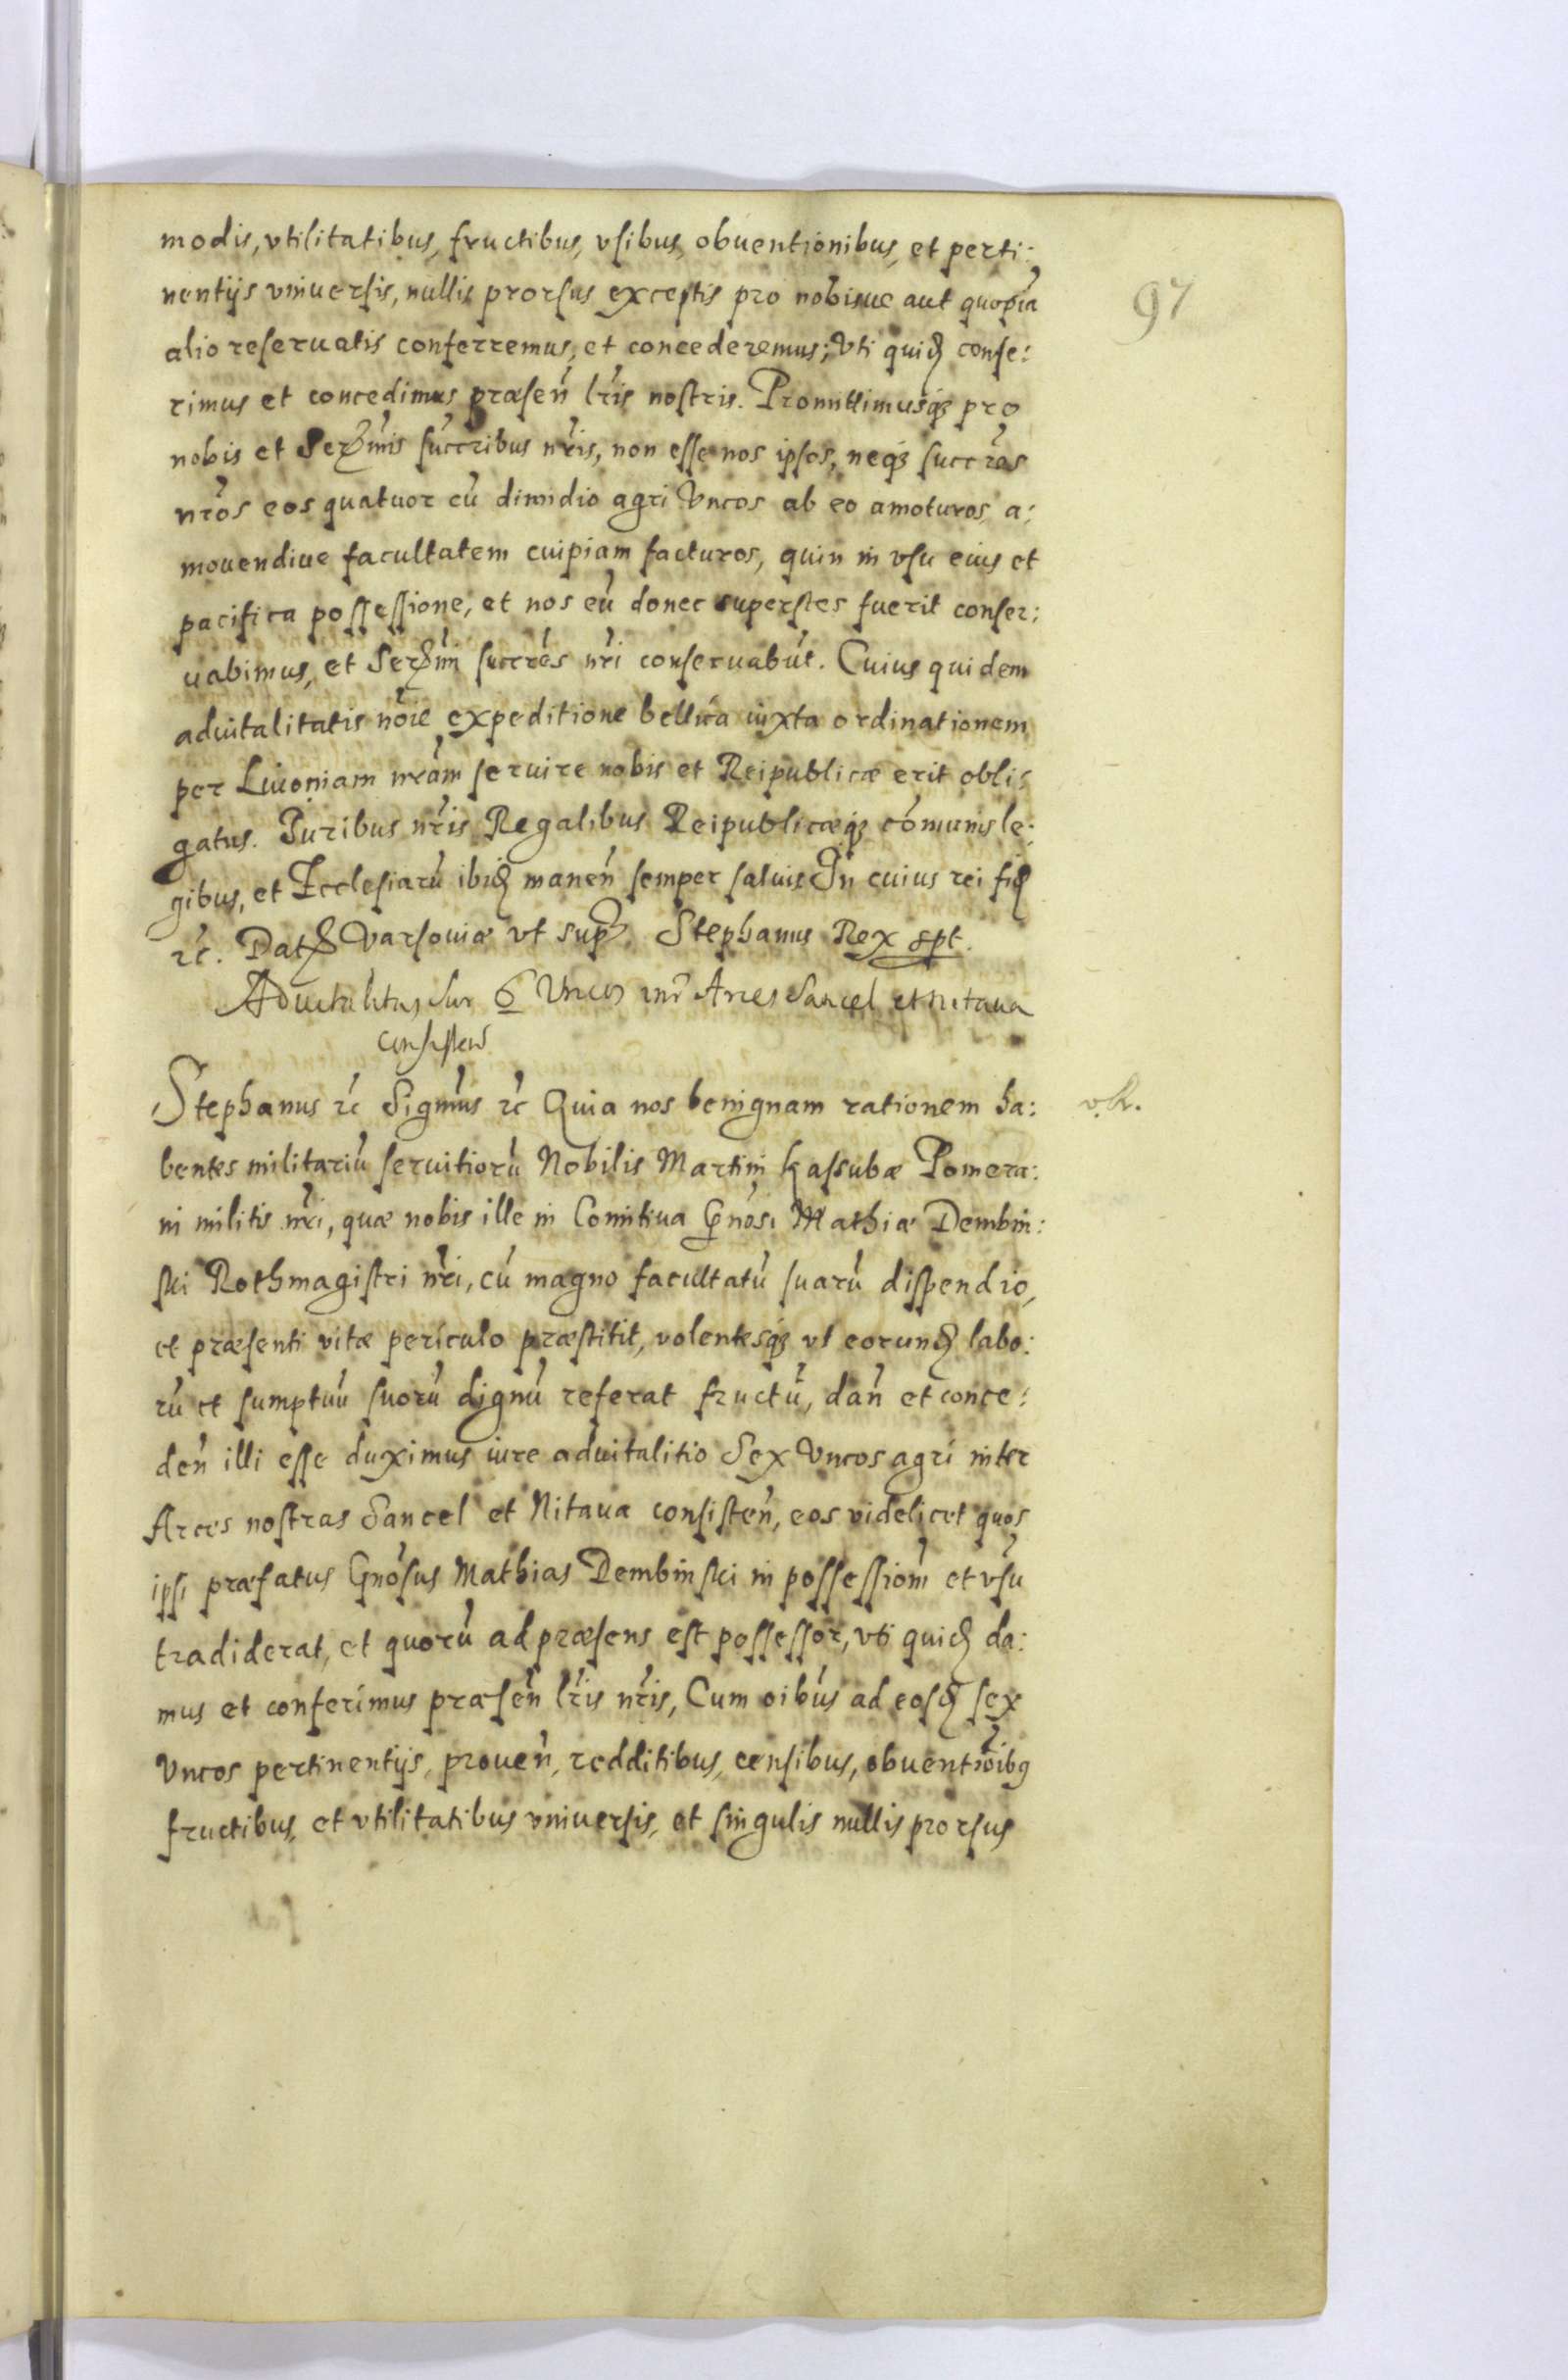 modis, vtilitatibus, fructibus, vsibus, obuentionibus, et perti:
nentijs vniuersis, nullis prorsus exceptis pro nobisue aut quopiā
97
alio reseruatis conferremus, et concederemus; Vti quiđ confe:
rimus et concedimus præsen̄ l̄ris nostris. Promittimusqꝫ pro
nobis et Ser̄mis succribus nr̄is, non esse nos ipsos, neqꝫ succr̄as
nr̄os eos quatuor cū dimidio agri Vncos ab eo amoturos, a:
mouendiue facultatem cuipiam facturos, quin in vsu eius et
pacifica possessione, et nos eū donec superstes fuerit conser:
uabimus, et Ser̄mi succr̄es nr̄i conseruabūt. Cuius quidem
aduitalitatis nōie expeditione bellica iuxta ordinationem
per Liuoniam nrām seruire nobis et Reipublicæ erit obli:
gatus. Juribus nr̄is Regalibus Reipublicæqꝫ cōmunis le:
gibus, et Ecclesiarū ibiđ manen̄ semper saluis In cuius rei fiđ
ꝛc̄. Dat̄ Varsouiæ vt sup̄. Stephanus Rex spt.
Aduitalitas sur 6 Vncos intr̄ Arces Sancel et Nitaua
consisten̄
Stephanus ꝛc̄ Sigm̄us ꝛc̄ Quia nos benignam rationem ha:
bentes militariū seruitiorū Nobilis Martini Kassubæ Pomera:
ni militis nr̄i, quæ nobis ille in Comitiua Gn̄osi Mathiæ Dembin:
ski Rothmagistri nr̄i, cū magno facultatū suarū dispendio,
et præsenti vitæ periculo præstitit, volentesqꝫ vt eorunđ labo:
rū et sumptuū suorū dignū referat fructū, dan̄ et conce:
den̄ illi esse duximus iure aduitalitio Sex Vncos agri inter
Arces nostras Sancel et Nitaua consisten̄, eos videlicet quos
ipsi præfatus Gn̄osus Mathias Dembinski in possessiōm et vsū
tradiderat, et quorū ad præsens est possessor, vti quiđ da:
mus et conferimus præsen̄ l̄ris nr̄is, Cum oibūs ad eosđ sex
Vncos pertinentijs, prouen̄, redditibus, censibus, obuentiōibꝰ
fructibus, et vtilitatibus vniuersis, et singulis nullis prorsus